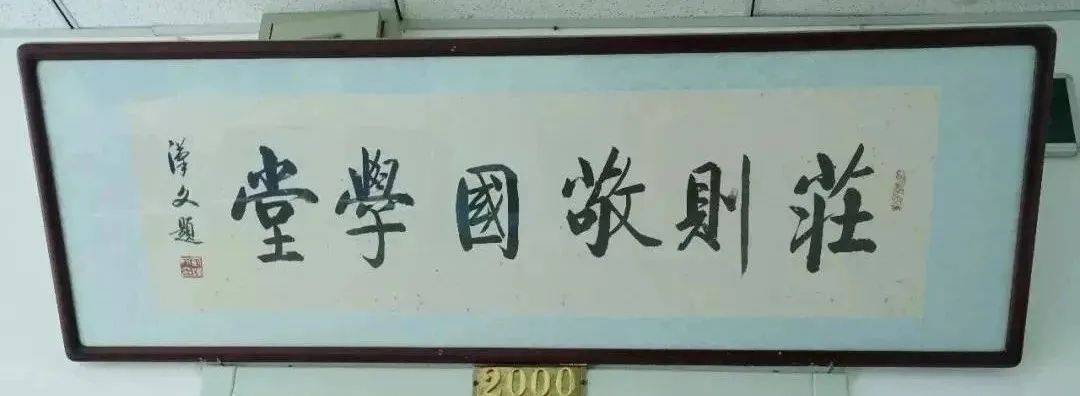 莊則敬國學堂
漢文題
2000